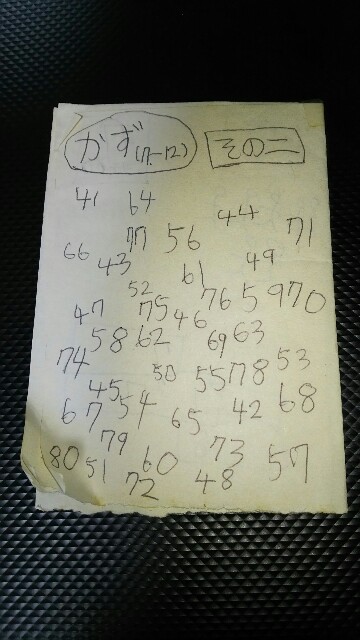 かず(17.-12.) その二
41 64 44
77 56 71
66 43 61 49
52 76 59 70
47 75 46
58 62 69 63
74 50 55 78 53
45 54 42 68
67 65
79 73
80 51 60 57
72 48